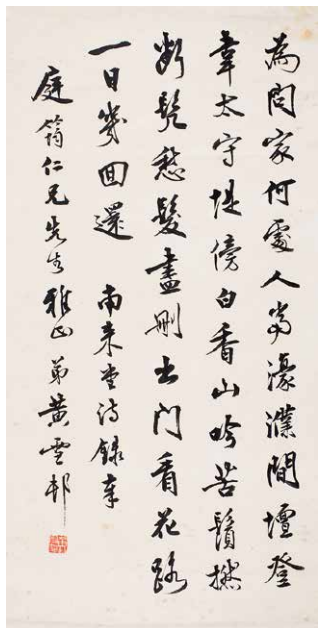 為問家何處人當濠濮間壇登
韋太守堤傍白香山吟苦鬚撚
斷髡愁髮盡刪出門看花路
一日幾回還 南來堂詩錄奉
庭筠仁兄先生雅正弟黃雲邨